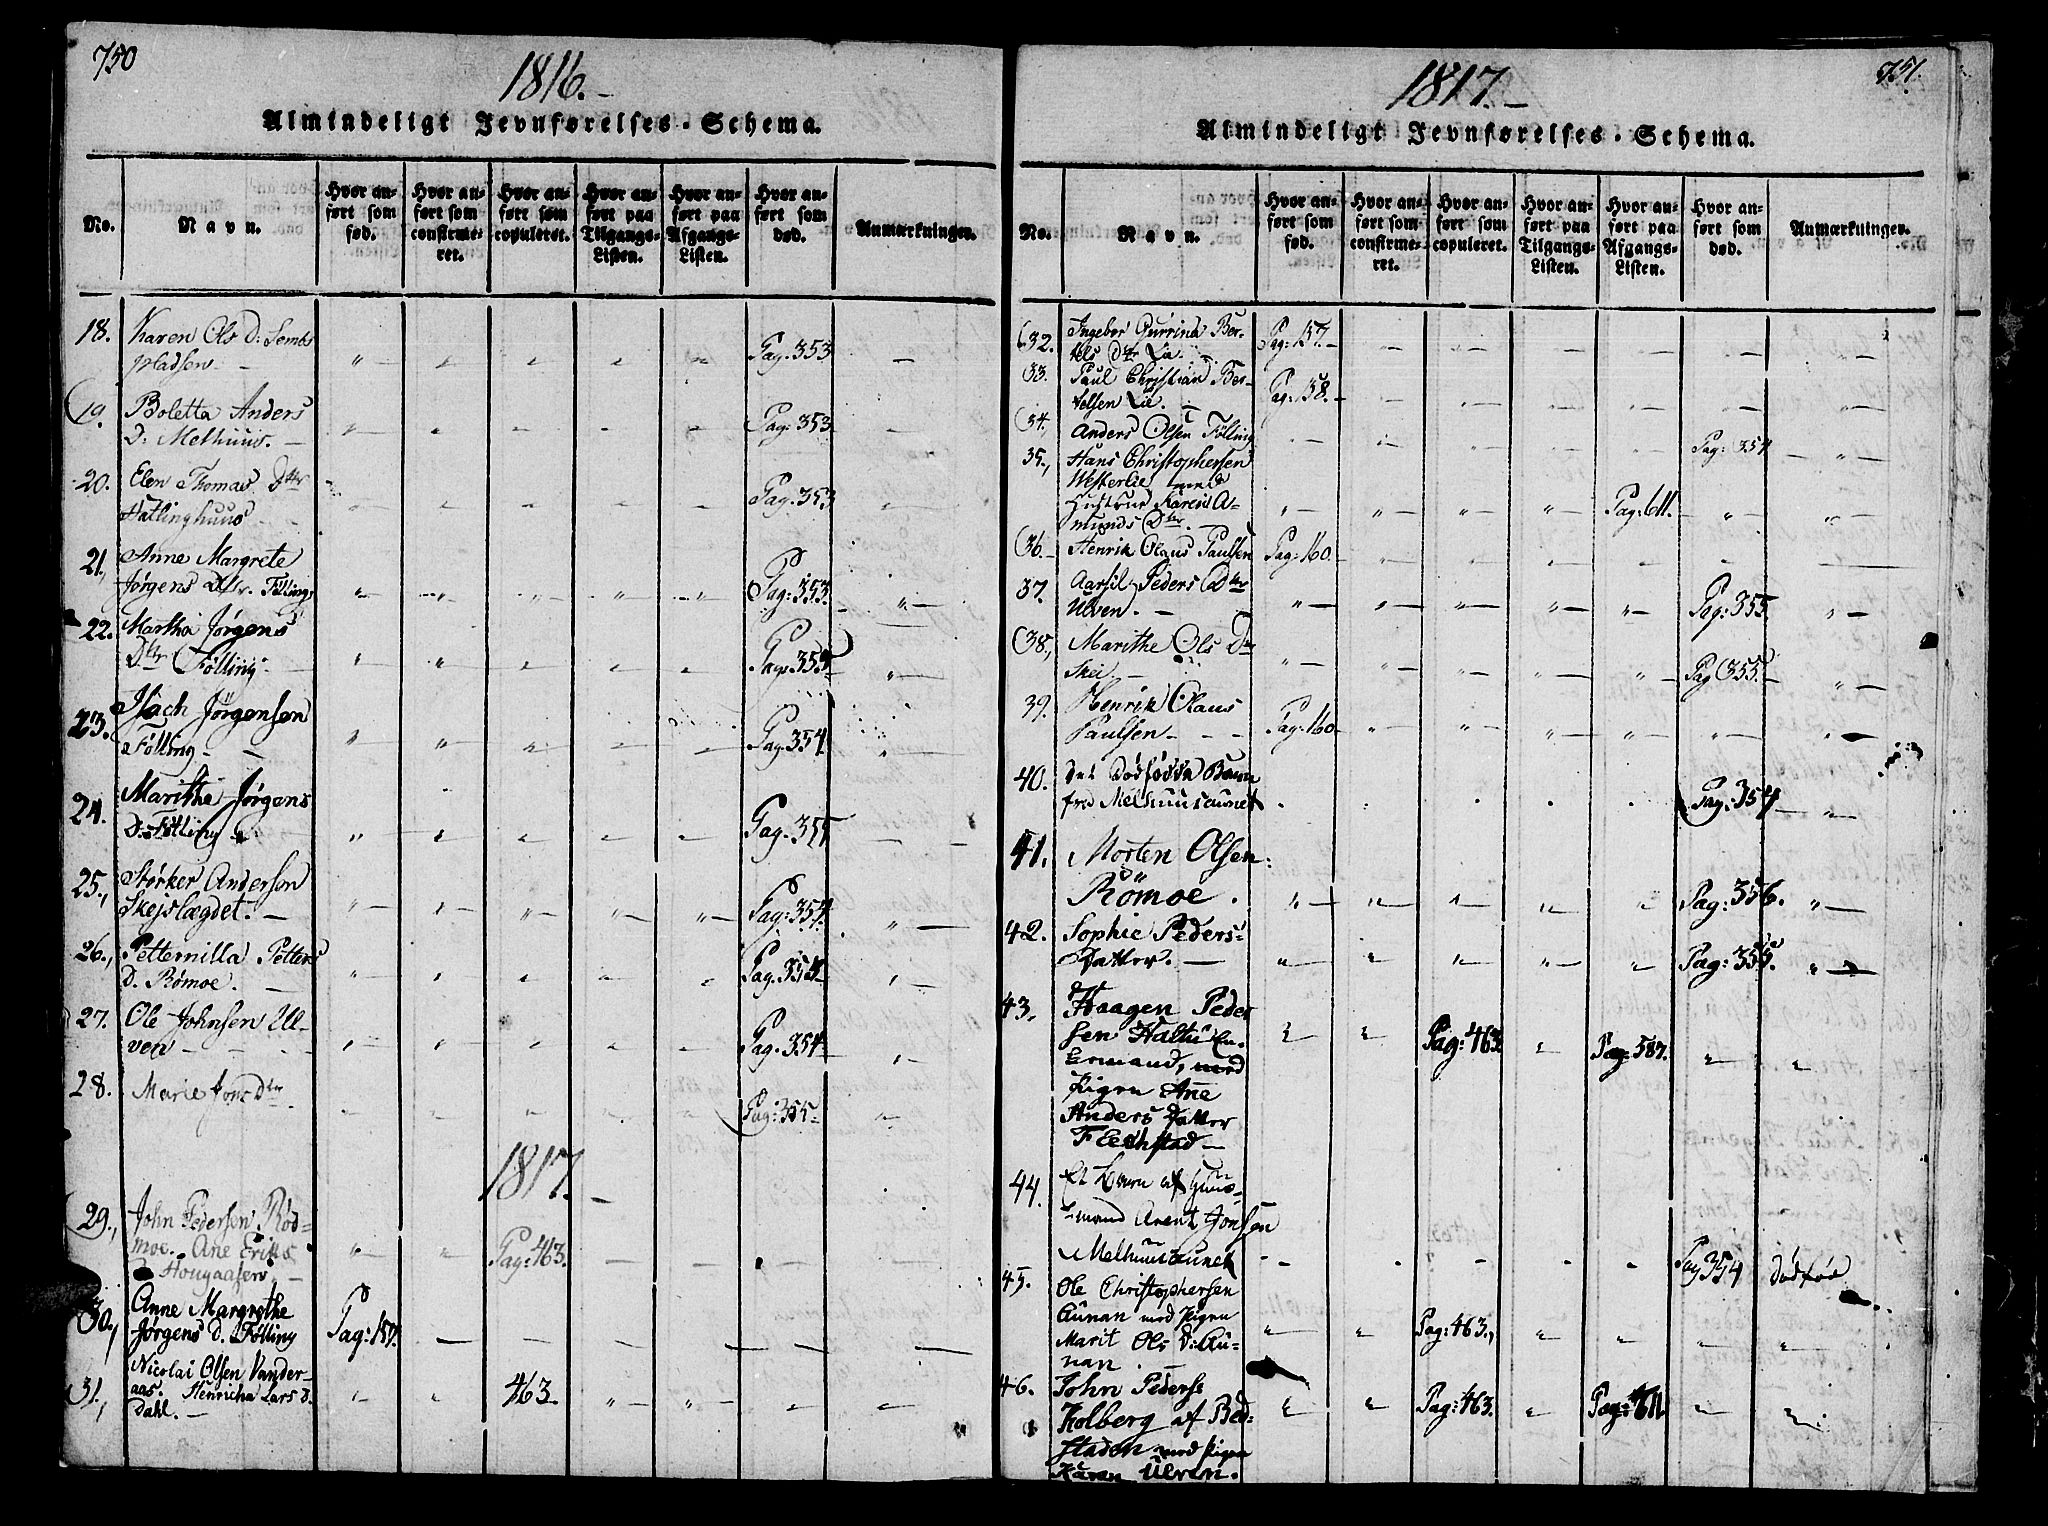 750
1816.
Almindeligt Jevnførelses-Schema.
No.
Navn.
Hvor anført som fød.
Hvor anført som confirmeret.
Hvor anført som copuleret.
Hvor anført paa Tilgangs-Listen.
Hvor anført paa Afgangs-Listen.
Hvor anført som død.
Anmærkninger.
18. Karen Ols D:
Pladsen Pag. 353
19. Boletta Anders
D: Melhuus. Pag: 353
20. Elen Thomas Dttr
Hallinghuus Pag. 353
21. Anne Margrete
Jørgens Dttr. Fölling Pag: 353.
22. Martha Jørgens
Dttr Fölling
23. Isach Jørgensen
Fölling Pag: 354
24. Marithe Jørgens
D: Fölling Pag.
25. Størker Andersen
Skejslægdet. Pag: 354.
26. Petternilla Petters
D. Rømoe. Pag.
27. Ole Johnsen Ul-
ven Pag. 354
28. Marie Jons Dtr Pag: 355
1817.
29. John Pedersen Rød-
moe. Ane Eriks
D Hougaasen Pag: 463.
30. Anne Margrethe
Jørgens d. Fölling Pag: 157.
31. Nicolai Olsen Vander-
aas. Henricha Lars D.
Dahl. 463.
1817.
751.
Almindeligt Jevnførelses-Schema.
No.
Navn.
Hvor anført som fød.
Hvor anført som confirmeret.
Hvor anført som copuleret.
Hvor anført paa Tilgangs-Listen.
Hvor anført paa Afgangs-Listen.
Hvor anført som død.
Anmærkninger.
32. Ingebor Gurrina Ber-
tels Dtr Lie. Pag: 157.
33. Paul Christian Ber-
telsen Lie. Pag: 158.
34. Anders Olsen Fölling Pag: 354
35. Hans Christophersen
Westerlie med
Hustrue Karen A-
munds Dtr. Pag: 611.
36. Henrik Olaus Paulsen Pag: 160.
37. Aarsil Peders Dtr
Ulven. Pag: 355.
38. Marithe Ols Dr
Skei Pag 355.
39. Henrik Olaus
Paulsen Pag: 160
40. Det Dødfødda Barn
fra Melhuusaunet Pag: 354
41. Morten Olsen
Römoe. Pag: 356.
42. Sophie Peders-
Datter. Pag:
43. Haagen Peder
sen
med
Pigen Ane
Anders Datter
Pag: 463 Pag: 587.
44. Et Barn af Huus-
mand Arent Jonsen
Melhuusaunet Pag 354 Dødfød
45. Ole Christophersen
Aunan med Pigen
Marit Ols D: Au-
nan. Pag: 463.
46. John Peders
Holberg af Bed-
staden med Pigen
Karen Ulven. Pag: 463. Pag: 611.